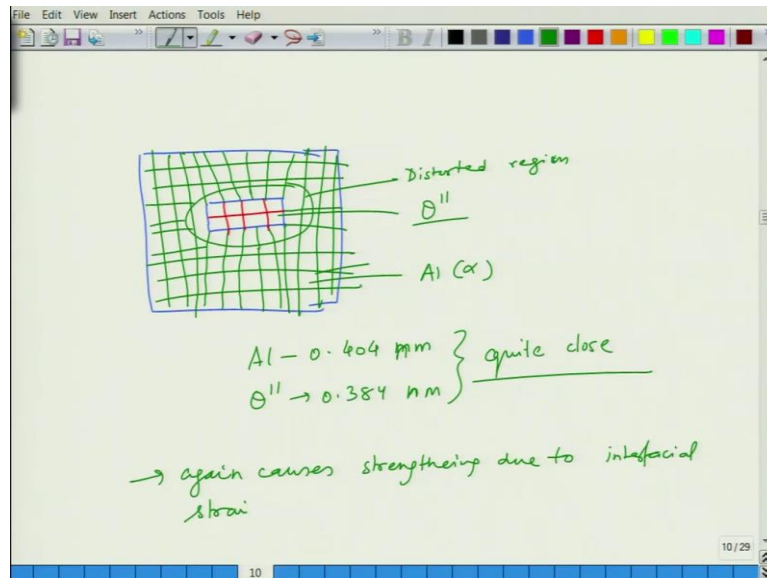 File Edit View Insert Actions Tools Help
B I
Distorted region
θ"
Al (α)
Al – 0.404 nm } quite close
θ" → 0.384 nm
→ again causes strengtheing due to interfacial
strai
10/29
10